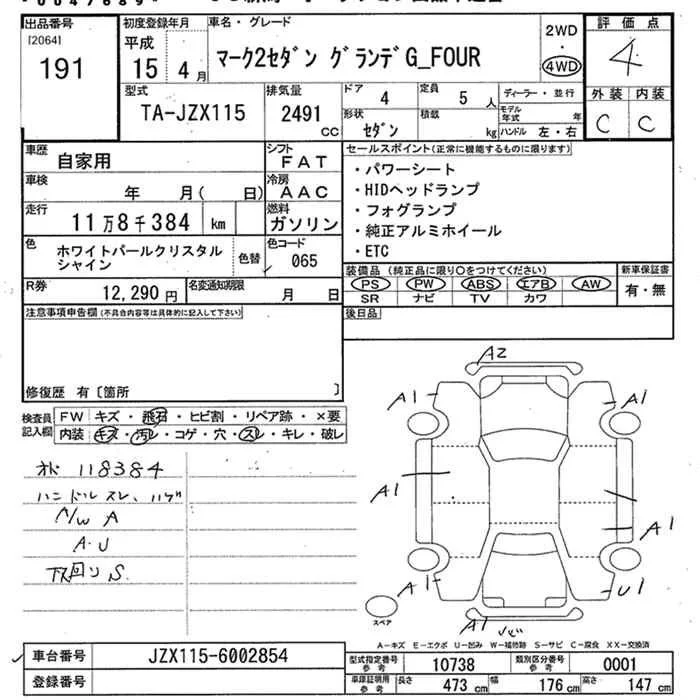 出品番号
[2064]
191
初度登録年月
平成
15年 4月
車名・グレード
マーク2セダン グランデG_FOUR
2WD
・
4WD
評価点
4
外装 内装
C C
型式
TA-JZX115
排気量
2491 cc
ドア 4
定員 5 人
形状 セダン
積載 kg
ディーラー・並行
モデル年式 年
ハンドル 左・右
車歴
自家用
シフト
FAT
車検
年 月( 日)
冷房
AAC
走行
11万8千384 km
燃料
ガソリン
色
ホワイトパールクリスタル
シャイン
色替
色コード
065
R券
12,290 円
名変通知期限
月 日
セールスポイント(正常に機能するものに限ります)
・パワーシート
・HIDヘッドランプ
・フォグランプ
・純正アルミホイール
・ETC
装備品 (純正品に限り○をつけてください)
PS PW ABS エアB AW
SR ナビ TV カワ
新車保証書
有・無
後日品
注意事項申告欄(不具合内容等は具体的に記入して下さい)
修復歴 有〔箇所 〕
検査員
記入欄
FW キズ・飛石・ヒビ割・リペア跡・×要
内装 キズ・汚レ・コゲ・穴・スレ・キレ・破レ
オド 118384
ハンドルスレ、ハゲ
N/W A
A・U
下回り S
A2
A1
A1
A1
A1
A1
U1
A1
スペア
A-キズ E-エクボ U-凹み W-補修跡 S-サビ C-腐食 XX-交換済
車台番号
JZX115-6002854
登録番号
型式指定番号
参考
10738
類別区分番号
参考
0001
車庫証明用
参考
長さ 473 cm
幅 176 cm
高さ 147 cm